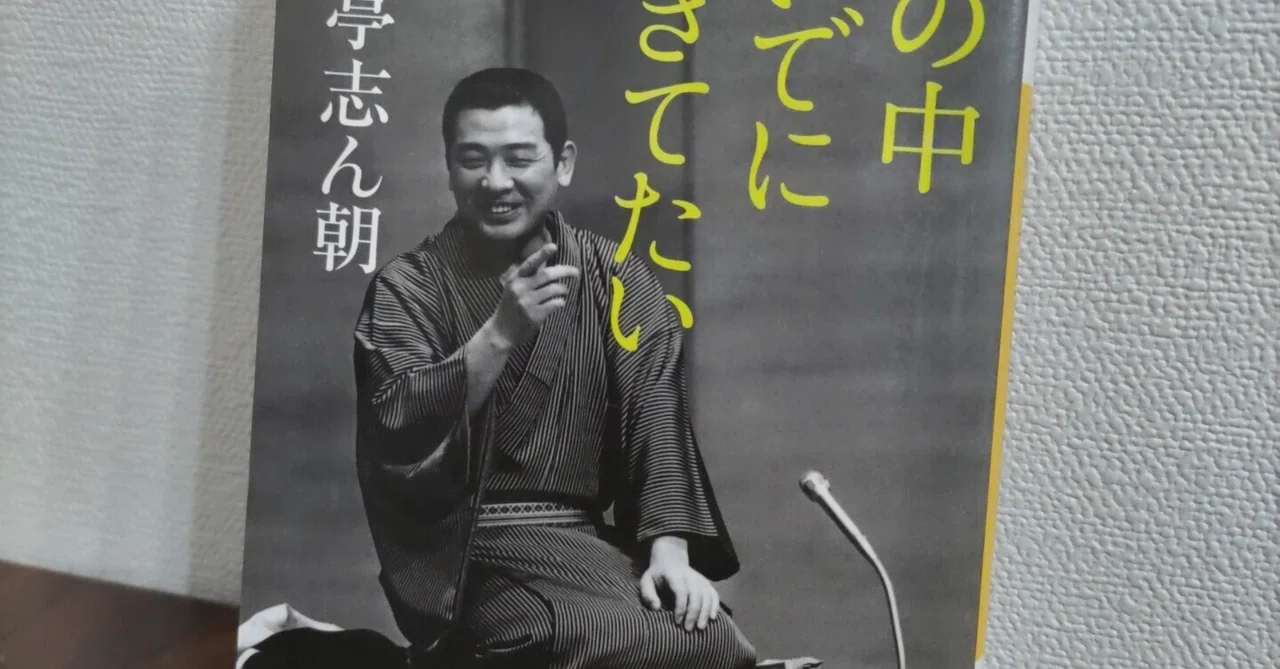 の中
でに
きてたい
亭志ん朝